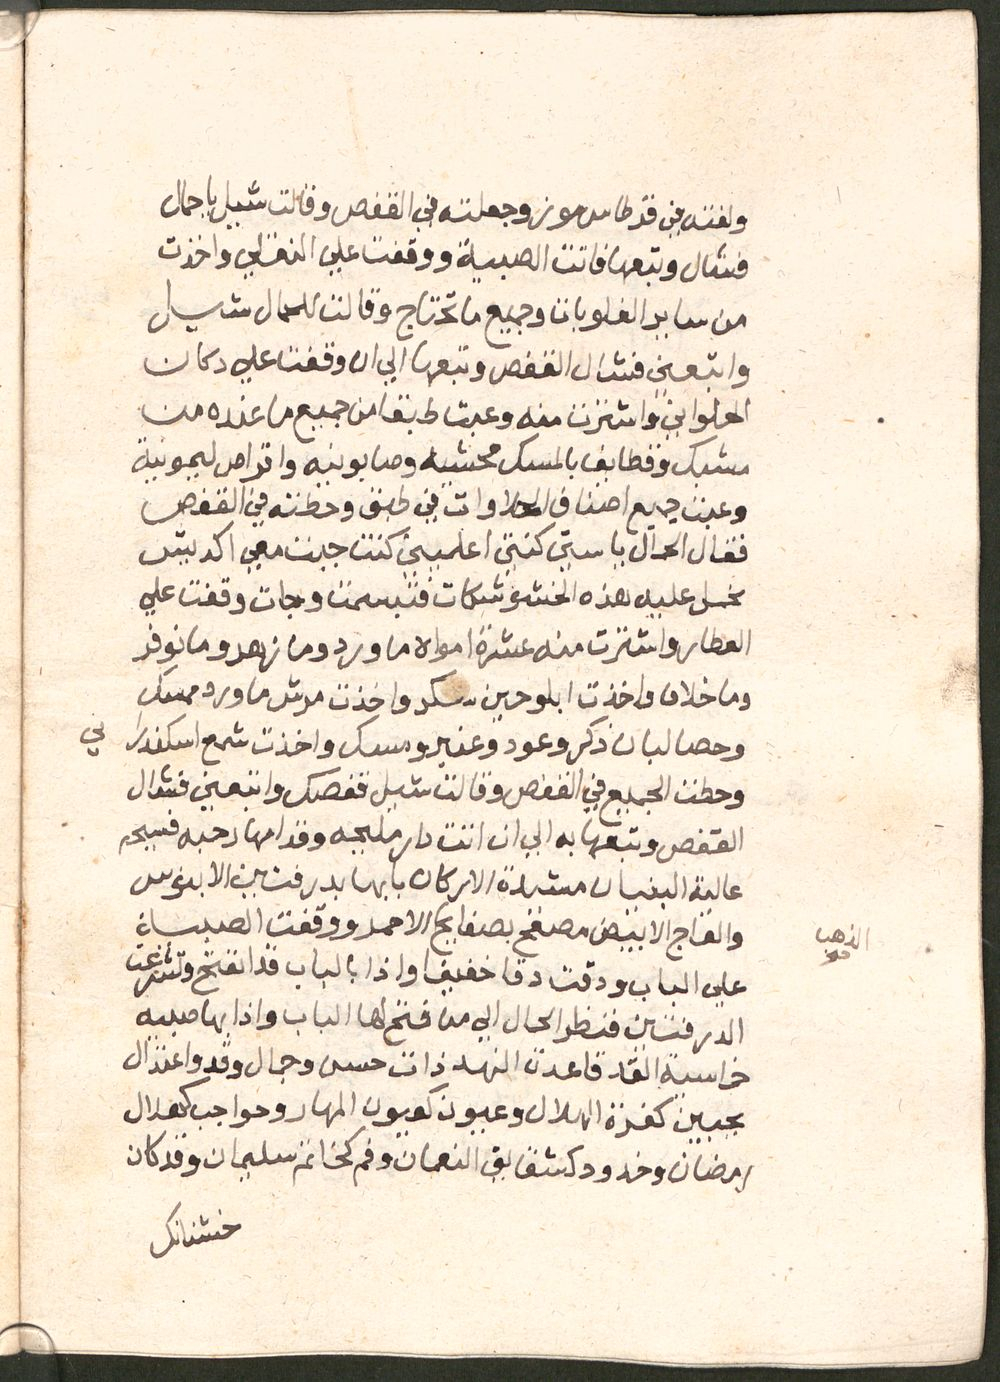 ولفته في قرطاس موز وجعلته في القفص وقالت شيل يا حمال
فشال وتبعها فاتت الصبية ووقفت علي النقلي واخذت
من ساير القلوبات وجميع ما تحتاج وقالت للحمال شيل
واتبعني فشال القفص وتبعها الي ان وقفت علي دكان
الحلواني واشترت منه وعبت طبقا من جميع ما عنده من
مشبك وقطايف بالمسك محشيه وصابونيه واقراص ليمونية
وعبت جميع اصناف الحلاوات في طبق وحطته في القفص
فقال الحمال يا ستي كنتي اعلمیني كنت جيت معي اكديش
نحمل عليه هذه الخشوشكات فتبسمت وجات وقفت علي
العطار واشترت منه عشرة امواه ماورد وما زهر ومانوفر
وما خلاف واخذت ابلوجين سكر واخذت مرش ماورد ممسك
وحصا لبان ذكر وعود وعنبر ومسك واخذت شمع اسكندرا ني
وحطت الجميع في القفص وقالت شيل قفصك واتبعني فشال
القفص وتبعها به الي ان اتت دار مليحه وقدامها رحبه فسيحه
عالية البنيان مشيدة الاركان بابها بدرفتين من الابنوس
والعاج الابيض مصفح بصفايح الاحمر ووقفت الصبياة
الذهب
علي الباب ودقت دقا خفيفا واذا بالباب قد انفتح وتشرعت
الدرفتين فنظر الحمال الي من فتح لها الباب واذا بها صبيه
خماسية القد قاعدة النهد ذات حسن وجمال وقد واعتدال
بجبين كغرة الهلال وعيون كعيون المهار وحواجب كهلال
رمضان وخدود كشقايق النعمان وفم كخاتم سليمان وقد كان
خشنانك